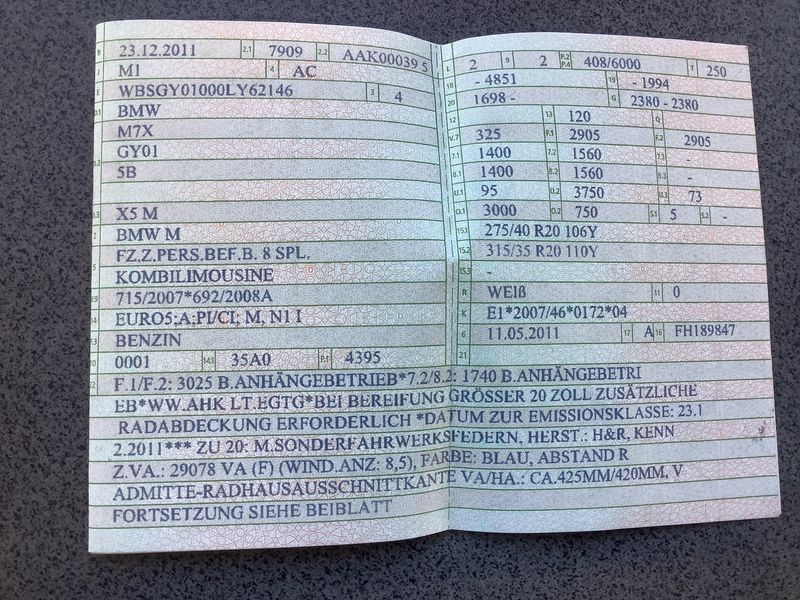 B 23.12.2011 2.1 7909 2.2 AAK00039 5
J M1 4 AC
E WBSGY01000LY62146 3 4
D.1 BMW
M7X
D.2 GY01
5B
D.3 X5 M
2 BMW M
FZ.Z.PERS.BEF.B. 8 SPL.
5 KOMBILIMOUSINE
V.9 715/2007*692/2008A
14 EURO5;A;PI/CI; M, N1 I
P.3 BENZIN
10 0001 14.1 35A0 P.1 4395
L 2 9 2 P.2 P.4 408/6000 T 250
18 - 4851 19 - 1994
20 1698 - G 2380 - 2380
12 13 120 Q
V.7 325 F.1 2905 F.2 2905
7.1 1400 7.2 1560 7.3 -
8.1 1400 8.2 1560 8.3 -
U.1 95 U.2 3750 U.3 73
O.1 3000 O.2 750 S.1 5 S.2 -
15.1 275/40 R20 106Y
15.2 315/35 R20 110Y
15.3 -
R WEIß 11 0
K E1*2007/46*0172*04
6 11.05.2011 17 A 16 FH189847
21
22 F.1/F.2: 3025 B.ANHÄNGEBETRIEB*7.2/8.2: 1740 B.ANHÄNGEBETRI
EB*WW.AHK LT.EGTG*BEI BEREIFUNG GRÖSSER 20 ZOLL ZUSÄTZLICHE
RADABDECKUNG ERFORDERLICH *DATUM ZUR EMISSIONSKLASSE: 23.1
2.2011*** ZU 20: M.SONDERFAHRWERKSFEDERN, HERST.: H&R, KENN
Z.VA.: 29078 VA (F) (WIND.ANZ: 8,5), FARBE: BLAU, ABSTAND R
ADMITTE-RADHAUSAUSSCHNITTKANTE VA/HA.: CA.425MM/420MM, V
FORTSETZUNG SIEHE BEIBLATT